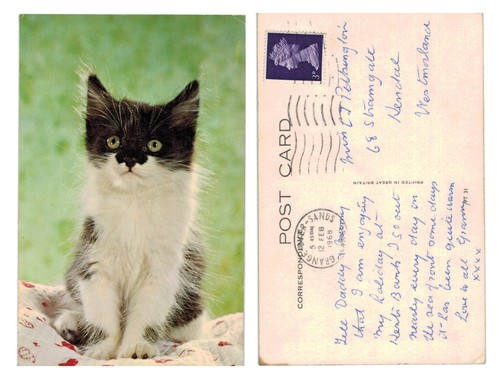 POST CARD
CORRESPONDENCE
PRINTED IN GREAT BRITAIN
GRANGE-OVER-SANDS
5 45PM
12 FEB
1969
3D
68 Stramgate
Kendal
Westmorland
Tell Daddy & Mummy
that I am enjoying
my holiday at
Bank I go out
nearly every day on
the sea front some days
it has been quite warm
Love to all Granny
xxxx